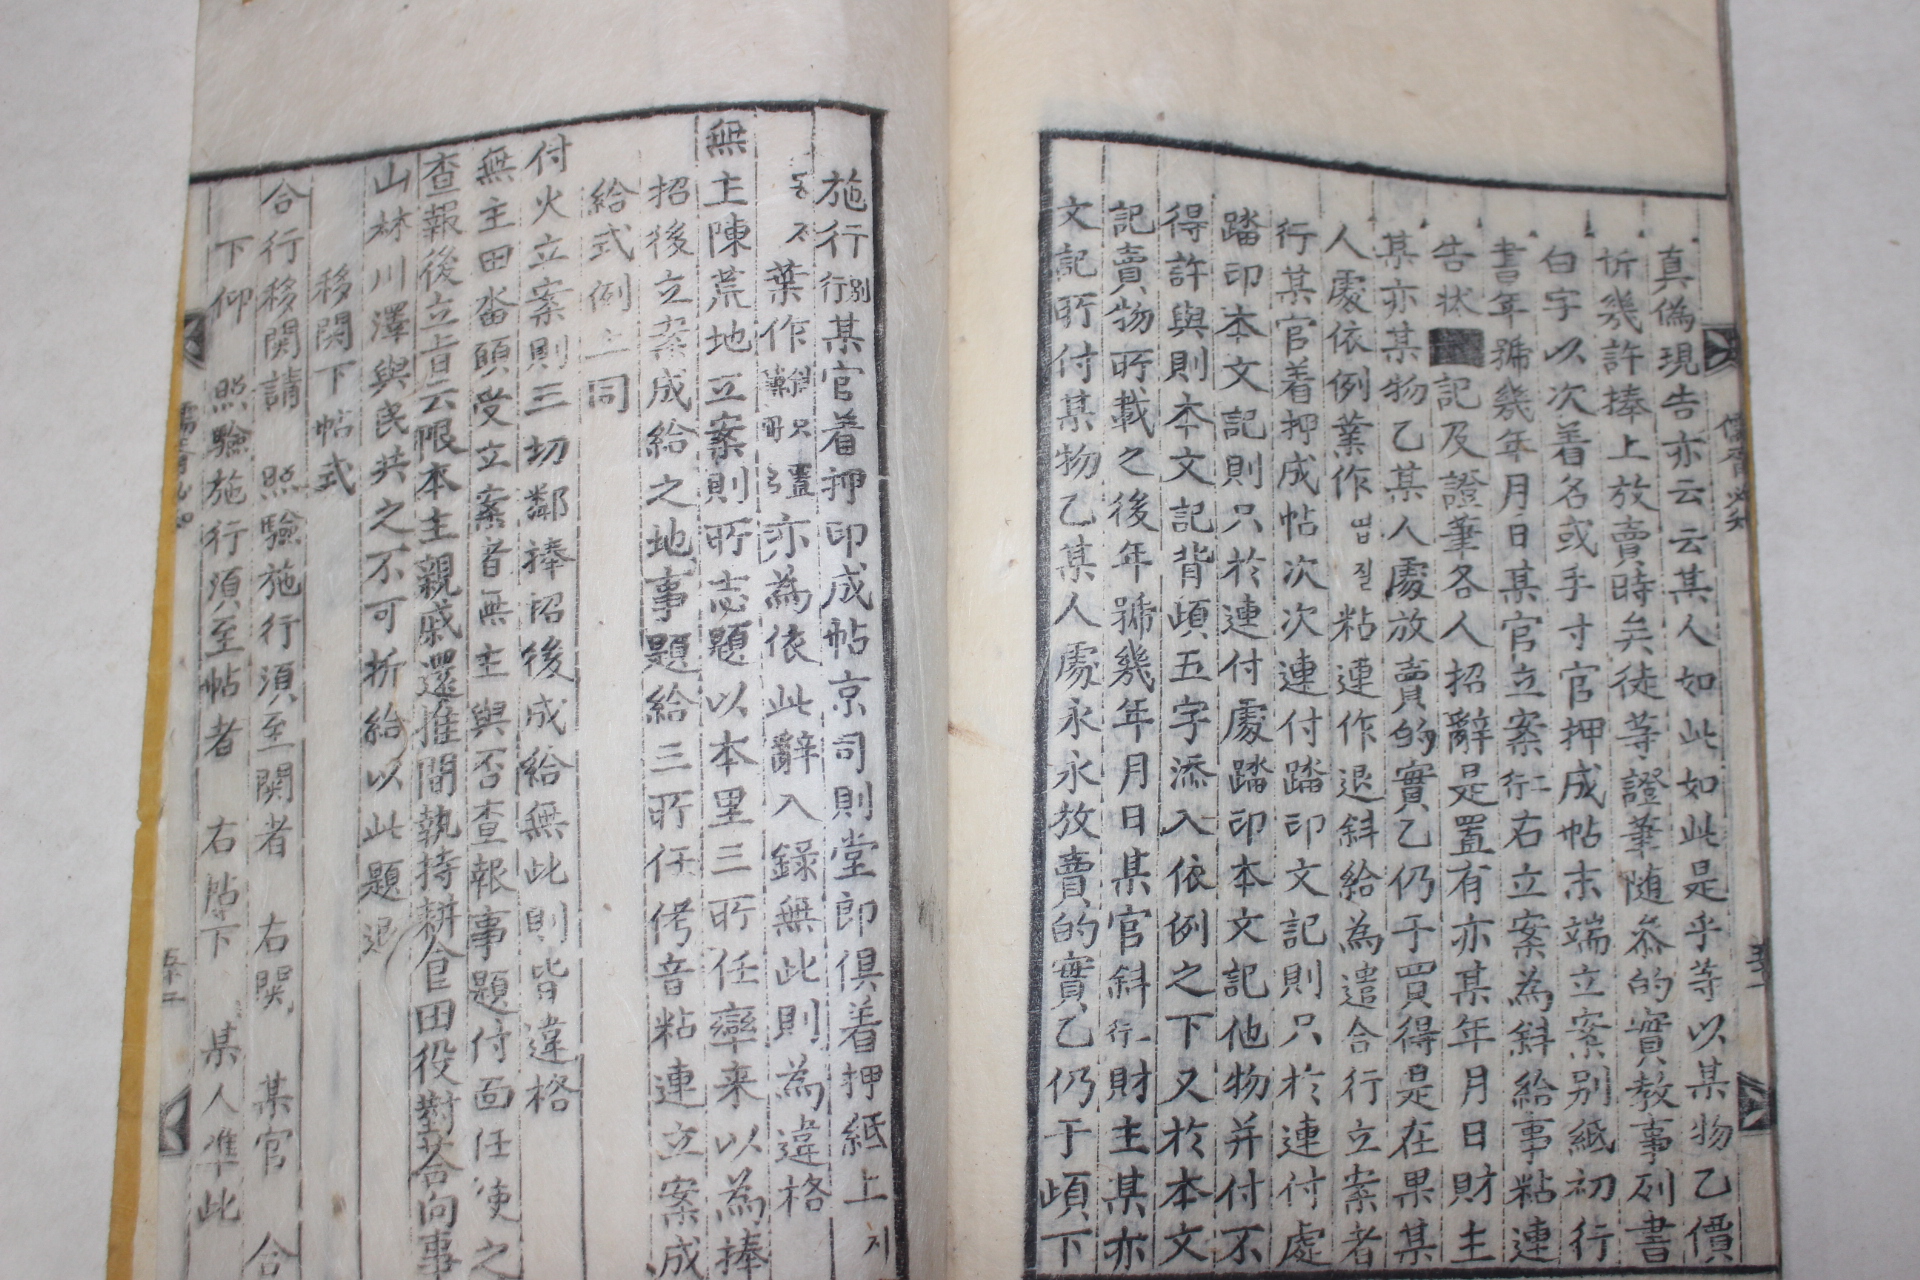 真偽現告亦云云某人如此如此是乎等以某物乙價
折幾許捧上放賣時矣徒等證筆随叅的實教事列書
白字以次着名或手寸官押成帖末端立案別紙初行
書年號幾年月日某官立案行二右立案為斜給事粘連
告状記及證筆各人招辭是置有亦某年月日財主
某亦某物乙某人處放賣的實乙仍于買得是在果某
人處依例業作엽질粘連作退斜給為遣合行立案者
行某官着押成帖次次連付踏印文記則只於連付處
踏印本文記則只於連付處踏印本文記他物并付不
得許與則本文記背頉五字添入依例之下又於本文
記賣物所載之後年號幾年月日某官斜行財主某亦
文記所付某物乙某人處永永放賣的實乙仍于頉下
儒胥必知
施行別行某官着押印成帖京司則堂郎俱着押紙上
葉作 置亦為依此辭入錄無此則為違格
無主陳荒地立案則所志題以本里三所任率来以為捧
招後立案成給之地事題給三所任侤音粘連立案成
給式例上同
付火立案則三切鄰捧招後成給無此則皆違格
無主田畓頤受立案者無主與否查報事題付面任使之
查報後立旨云限本主親戚還推間執持耕食田役對答向事
山林川澤與民共之不可折給以此題退
移関下帖式
合行移関請 照驗施行須至関者 右関 某官 合
下仰 照驗施行須至帖者 右帖下 某人准此